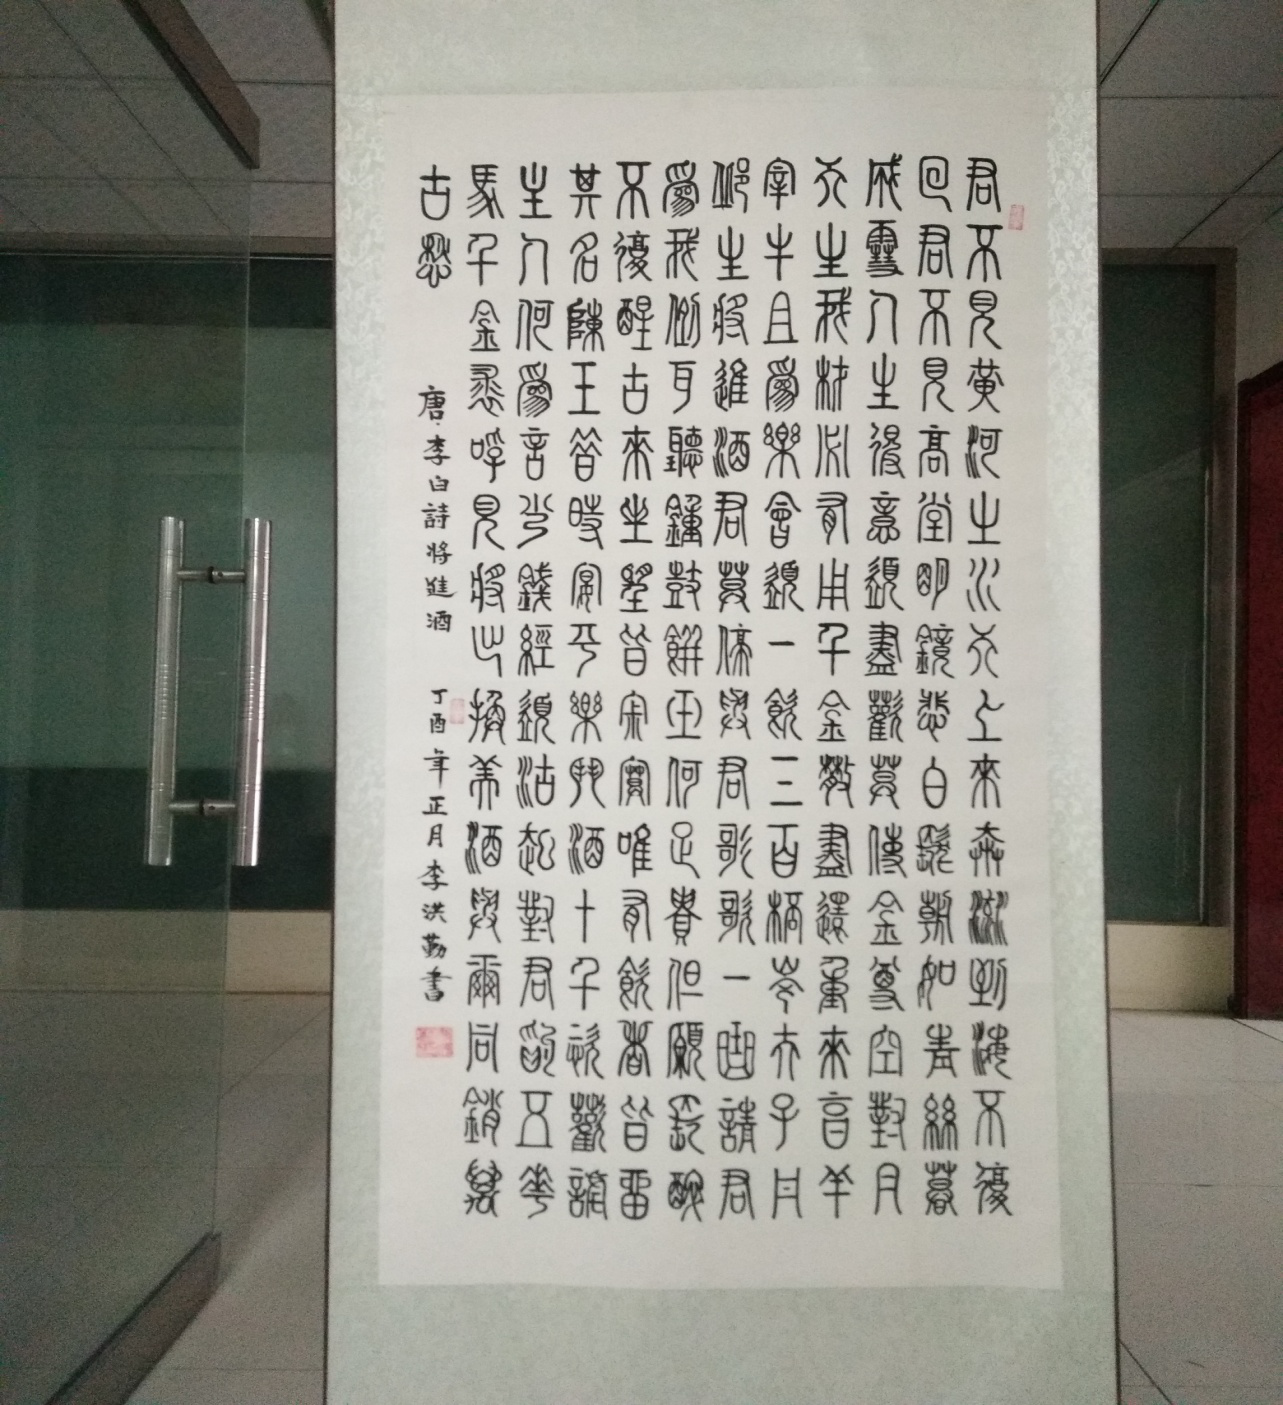 君不見黃河之水天上來奔流到海不復
回君不見高堂明鏡悲白髮朝如青絲暮
成雪人生得意須盡歡莫使金尊空對月
天生我材必有用千金散盡還重來亯羊
宰牛且爲樂會須一飲三百桮岑夫子丹
邱生將進酒君莫停與君歌歌一曲請君
爲我側耳聽鍾鼓玉何足貴但願長醉
不復醒古來皆寂寞唯有飲者皆留
其名陳王昔時宴平樂鬥酒十千恣歡謔
主人何爲言少錢經須沽取對君酌五花
馬千金裘呼兒將出換美酒與爾同銷萬
古愁
唐·李白詩將進酒 丁酉年正月李洪勤書